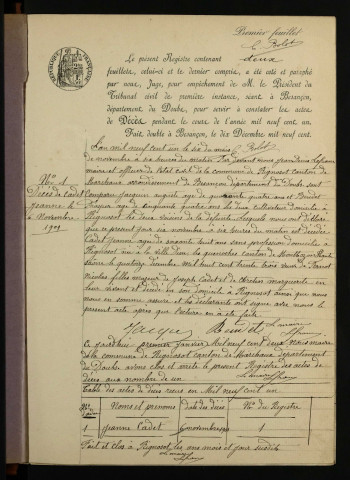 Premier feuillet
C. Bolot
Le présent Registre contenant deux
feuillets, celui-ci et le dernier compris, a été coté et paraphé
par nous, Juge, pour empêchement de M. le Président du
Tribunal civil de première instance, séant à Besançon,
département du Doubs, pour servir à constater les actes
de Décès pendant le cours de l'année mil neuf cent un.
Fait, double à Besançon, le dix Décembre mil neuf cent.
C. Bolot
L'an mil neuf cent un le six du mois
de novembre à six heures du matin Par devant nous
maire et officier de l'état civil de la commune de Rignosot canton de
Marchaux arrondissement de Besançon département du Doubs sont
N° 1
Décès de Cadet
Jeanne le
6 Novembre
1901
comparus Jacquin auguste agé de quarante quatre ans et Bendet
agé de cinquante quatre ans tous deux cultivateurs domiciliés à
Rignosot les deux voisins de la défunte Lesquels nous ont déclaré
que ce jourd'hui six novembre à six heures du matin est décédée
Cadet Jeanne agée de soixante huit ans sans profession domiciliée à
Rignosot née à la ville Dieu les canton de Montbozon Haute
Saône le quatorze décembre mil huit cent trente trois veuve de
Nicolas fille majeure de Joseph Cadet et de marguerite en
leur vivant et décédés en son domicile à Rignosot ainsi que nous
nous en sommes assuré et les déclarants ont signé avec nous le
présent acte après que lecture en a été faite
Le maire
Ce jourd'hui premier janvier Mil neuf cent deux nous maire
de la commune de Rignosot canton de Marchaux département
du Doubs avons clos et arrêté le présent Registre des actes de
décès au nombre de un. Le maire
Table des actes de décès reçus en Mil neuf cent un
Noms et prénoms date des décès N° du Registre
1 Jeanne Cadet 6 novembre 1901 1
Fait et clos à Rignosot, les ans mois et jour susdits
Le maire